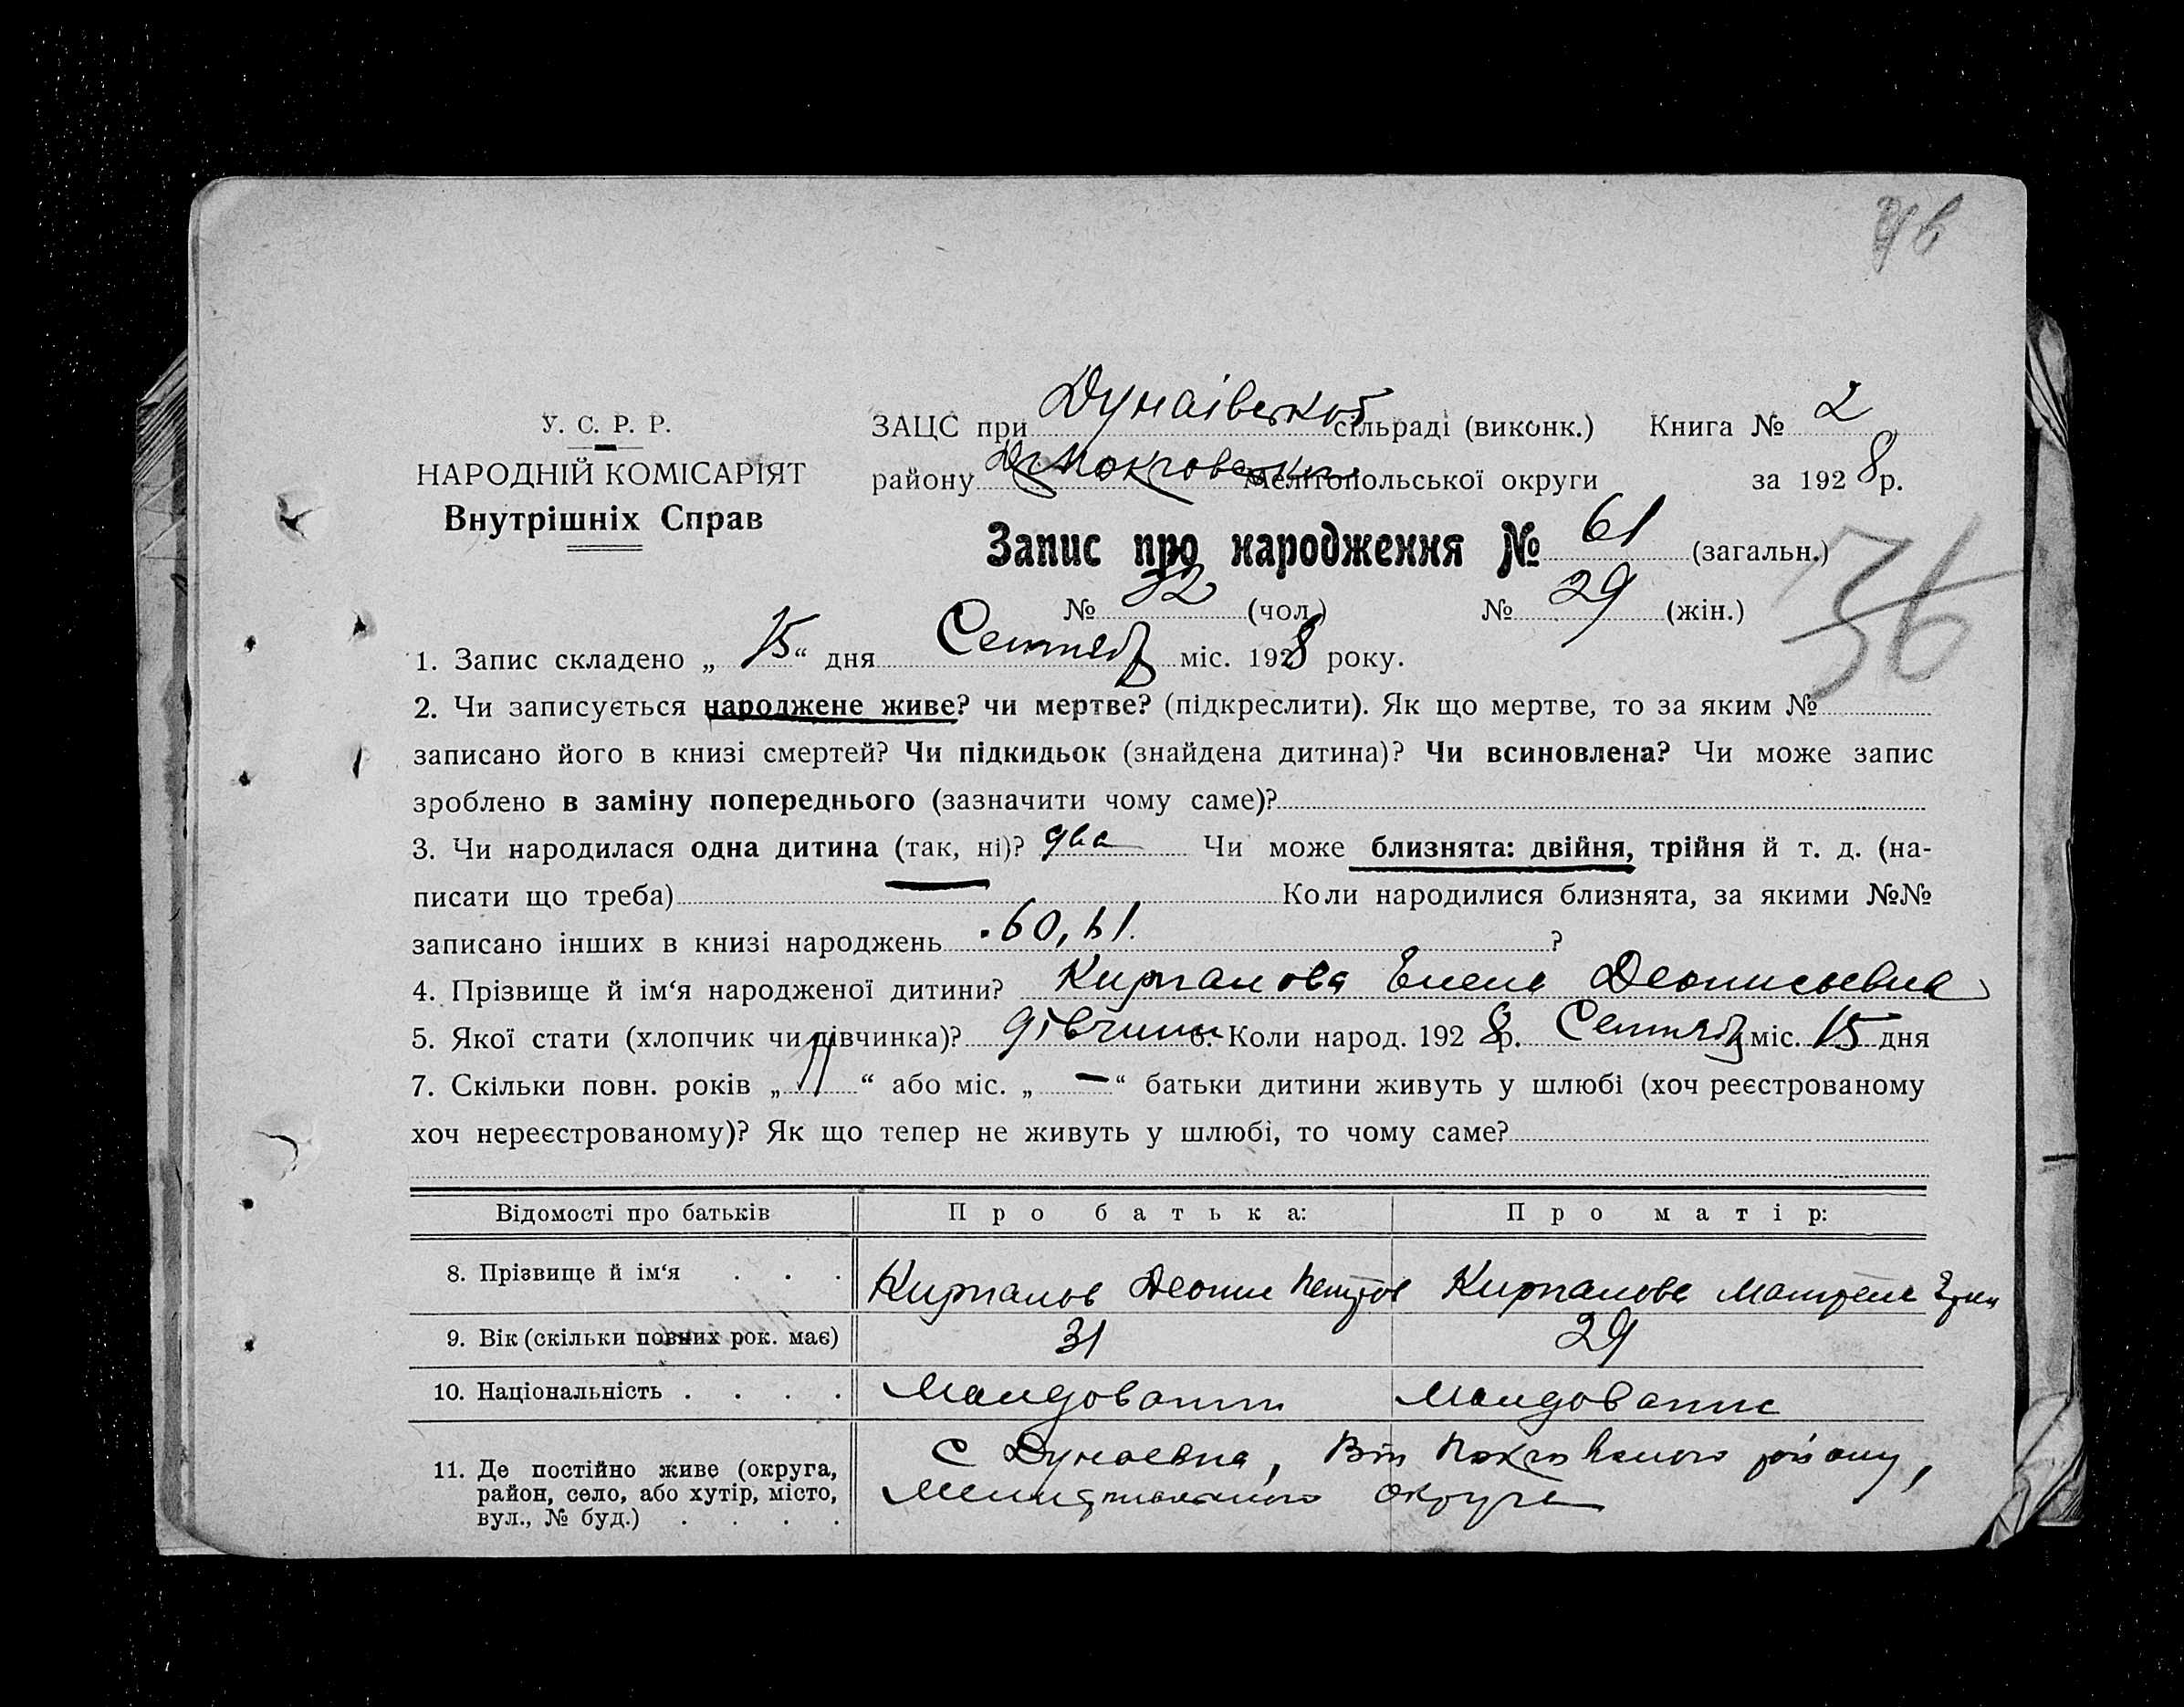 У. С. Р. Р.
НАРОДНІЙ КОМІСАРІЯТ
Внутрішніх Справ
ЗАЦС при Дунаівській сільраді (виконк.) Книга № 2
району Мелітопольської округи за 1928 р.
Запис про народження № 61 (загальн.)
№ 32 (чол.) № 29 (жін.)
36
1. Запис складено „ 15 “ дня Сентяб міс. 1928 року.
2. Чи записується народжене живе? чи мертве? (підкреслити). Як що мертве, то за яким №
записано його в книзі смертей? Чи підкидьок (знайдена дитина)? Чи всиновлена? Чи може запис
зроблено в заміну попереднього (зазначити чому саме)?
3. Чи народилася одна дитина (так, ні)? два Чи може близнята: двійня, трійня й т. д. (на-
писати що треба) Коли народилися близнята, за якими №№
записано інших в книзі народжень 60, 61. ?
4. Прізвище й ім‘я народженої дитини? Елена Деонисьевна
5. Якої стати (хлопчик чи дівчинка)? дівчина 6. Коли народ. 1928 р. Сентяб міс. 15 дня
7. Скільки повн. років „ 11 “ або міс. „ — “ батьки дитини живуть у шлюбі (хоч реєстрованому
хоч нереєстрованому)? Як що тепер не живуть у шлюбі, то чому саме?
Відомості про батьків Про батька: Про матір:
8. Прізвище й ім‘я . . . Деонис Петров Матрена
9. Вік (скільки повних рок. має) 31 29
10. Національність . . . . Молдовани Молдоване
11. Де постійно живе (округа, район, село, або хутір, місто, вул., № буд.) . . . .
С Дунаевка, району,
округа